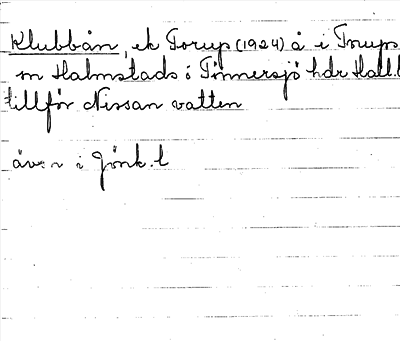 Klubbån, ek Torup (1924) å i Torups
sn Halmstads o Tönnersjö hdr Hall.l
tillför Nissan vatten
även i Jönk.l